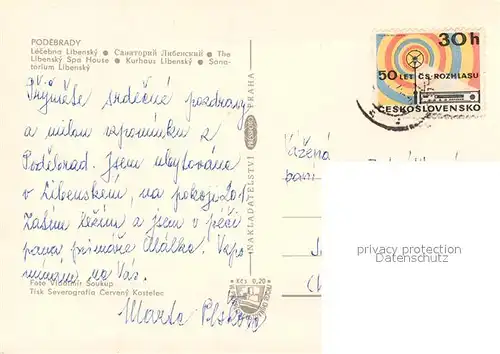 PODĚBRADY
Léčebna Libenský ● Санаторий Либенский ● The
Libenský Spa House ● Kurhaus Libenský ● Sana-
torium Libenský
30 h
50 LET ČS. ROZHLASU
ČESKOSLOVENSKO
Přijměte srdečné pozdravy
a milou vzpomínku z
Poděbrad. Jsem ubytována
v Libenském, na pokoji 201
Zatím ležím a jsem v péči
pana primáře Málka. Vzpo-
mínám na Vás.
Marta
Vážená
paní
NAKLADATELSTVÍ PRAHA
Kčs 0,20
Foto Vladimír Soukup
Tisk Severografia Červený Kostelec
privacy protection
Datenschutz